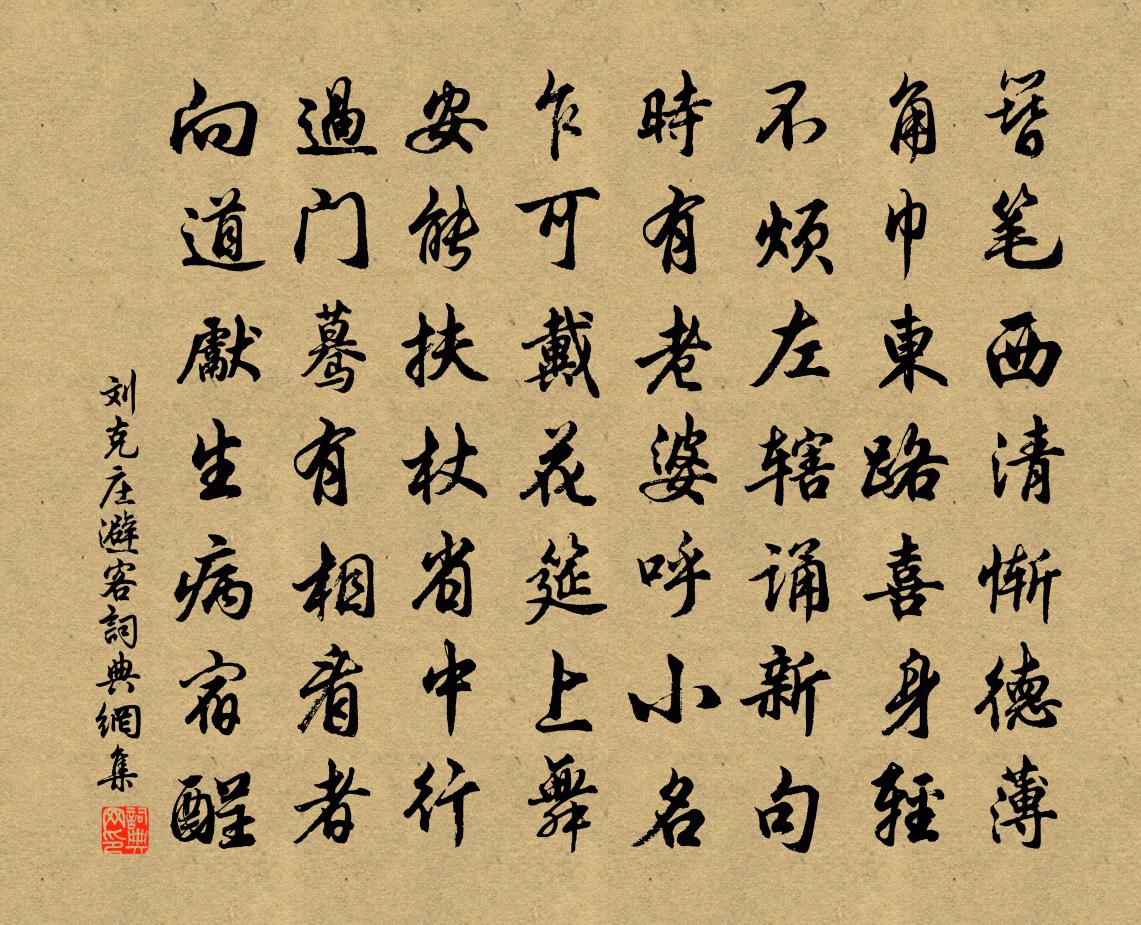 簪笔西清惭德薄
角巾東路喜身輕
不烦左辖诵新句
時有老婆呼小名
乍可戴花筵上舞
安能扶杖省中行
過门驀有相看者
向道獻生病宿酲
刘克庄避客詞典網集
詞典网印